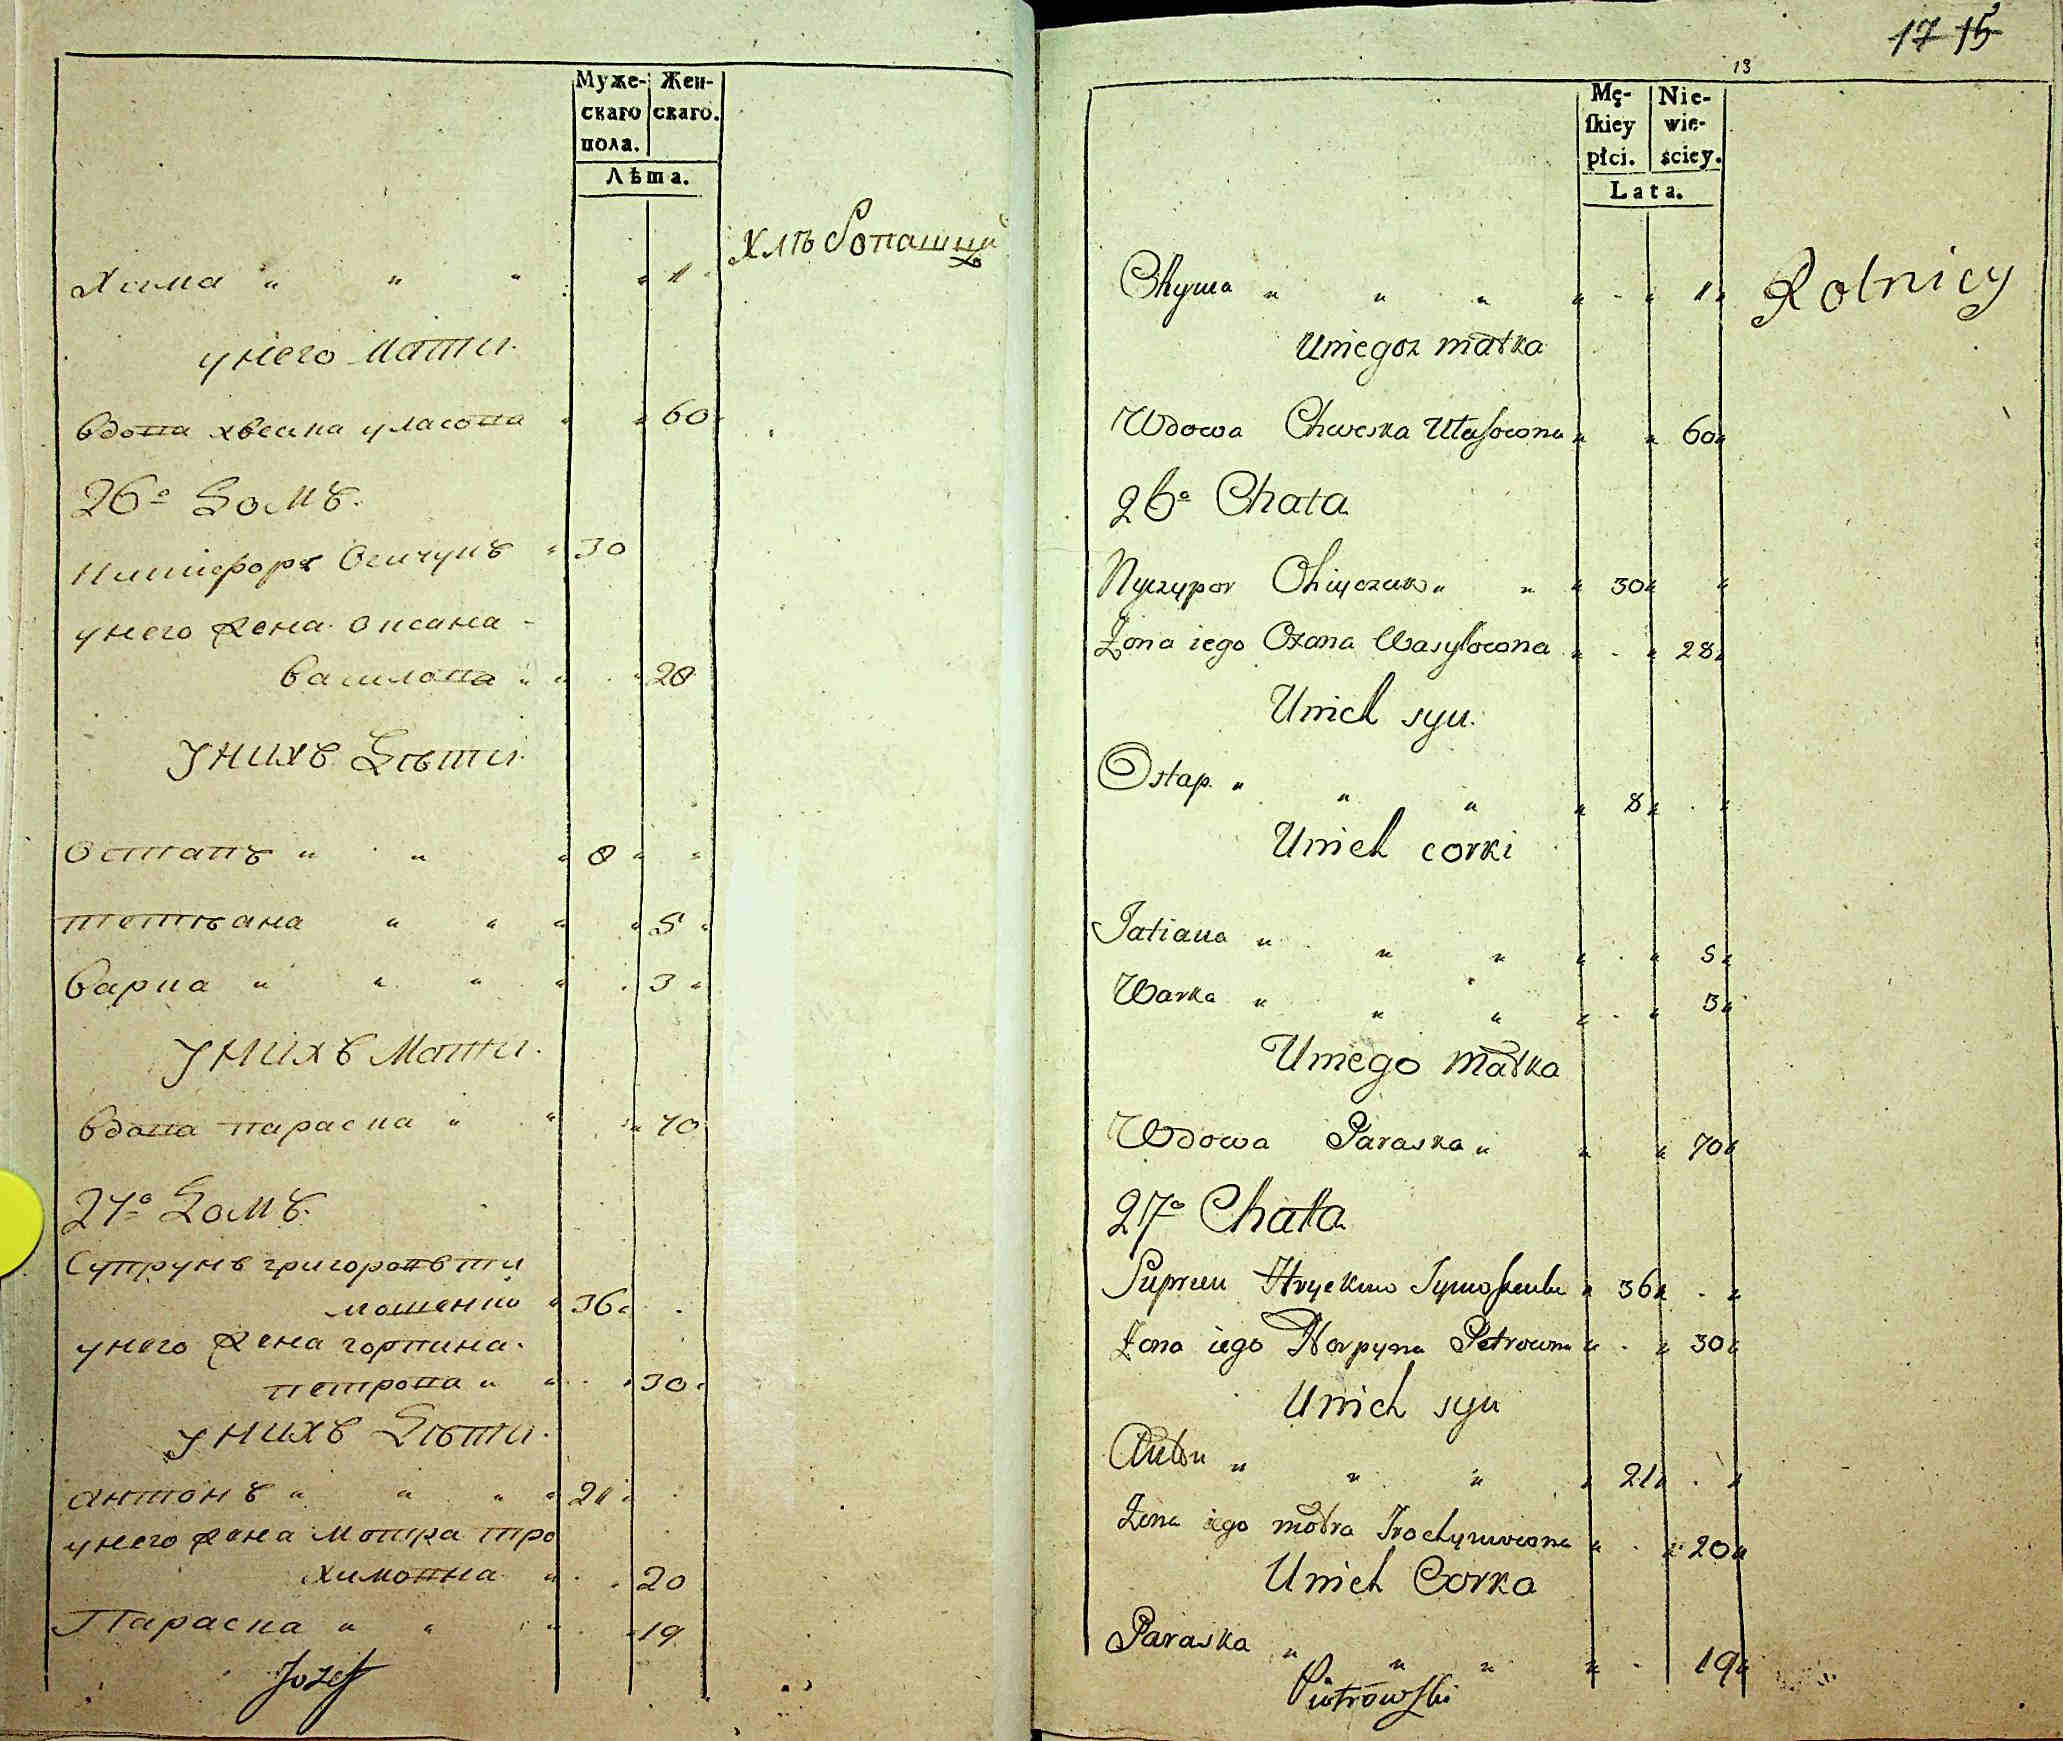 Муже-
скаго
пола.
Жен-
скаго.
Лѣта.
Хлѣбопашци
Хима " " " " 1
у него мати
вдова хвеска уласова " " 60
26º Домъ.
Ничифоръ Огичукъ " 30
у него жена Оксана
василова " " " 28
у нихъ Дѣти
Остапъ " " " 8 " "
тетѣана " " " " 5 "
варка " " " " 3 "
у нихъ мати
вдова параска " " " 70
27º Домъ.
Супрунъ григоровъ ти
мошенко " 36 "
у него жена горпина
петрова " " " 30
у нихъ Дѣти
антонъ " " " " 21 "
у него жена мотра тро
химовна " " 20
Параска " " " " 19
Jozef
17 15
13
Mę-
ſkiey
płci.
Nie-
wie-
ściey.
Lata.
Rolnicy
Chyma " " " " " 1 "
U niegoz matka
Wdowa Chweska Ułasowna " " 60 "
26º Chata
Nyczypor Ohiyczuk " " " 30 " "
Żona iego Oxana Wasylowna " " 28 "
U nich syn
Ostap " " " " 8 " "
U nich corki
Tatiana " " " " " 5 "
Warka " " " " " 3 "
U niego matka
Wdowa Paraska " " " 70 "
27º Chata
Suprun Hryckow Tymoszenko " 36 " "
Żona iego Horpyna Petrowna " " 30 "
U nich syn
Anton " " " " 21 " "
Żona iego motra Trochymowna " " 20 "
U nich Corka
Paraska " " " " 19 "
Piotrowski